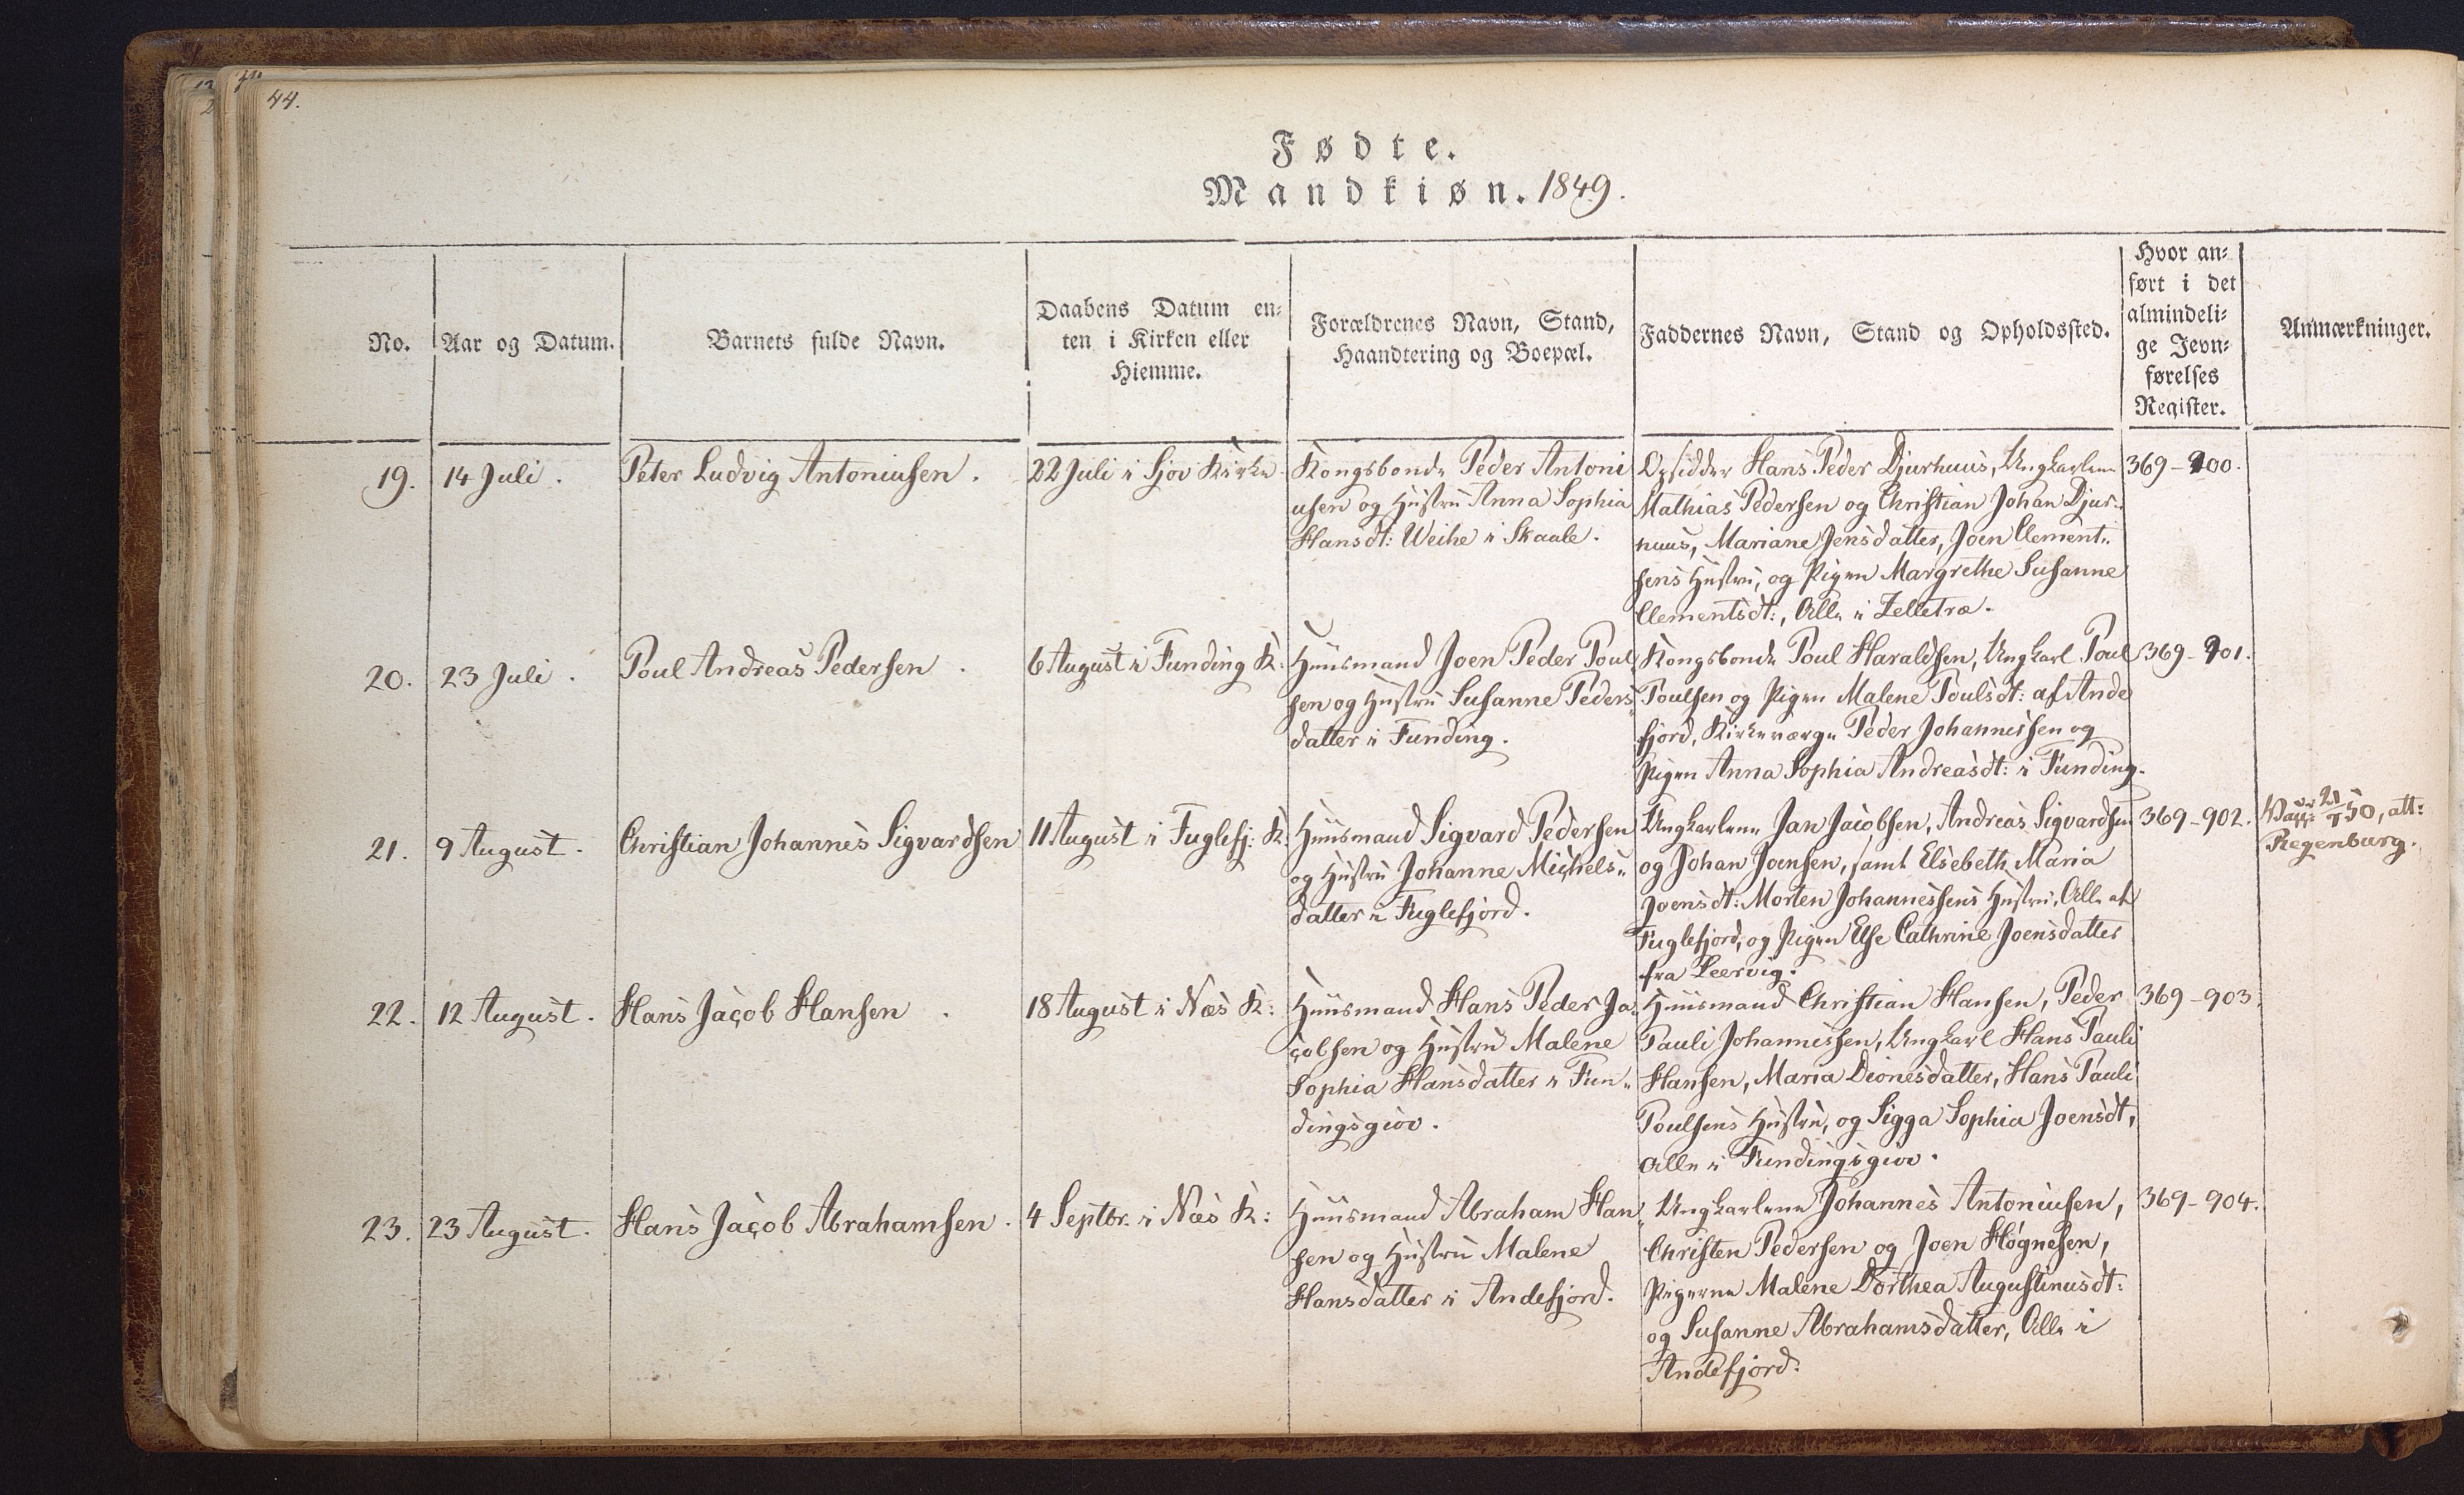 44.
Fødte.
Mandkiøn. 1849.
No.
Aar og Datum.
Barnets fulde Navn.
Daabens Datum en-
ten i Kirken eller
Hiemme.
Forældrenes Navn, Stand,
Haandtering og Boepæl.
Faddernes Navn, Stand og Opholdssted.
Hvor an-
ført i det
almindeli-
ge Jevn-
førelses
Register.
Anmærkninger.
19.
14 Juli.
Peter Ludvig Antoniussen.
22 Juli i Gjov Kirke
Kongsbonde Peder Antoni
ussen og Hustru Anna Sophia
Hansdt: Weihe i Skaale.
Opsidder Hans Peder Djurhuus, Ungkarlene
Mathias Pedersen og Christian Johan Djur-
huus, Mariane Jensdatter, Joen Clement-
sens Hustru, og Pigen Margrethe Susanne
Clementsdt:, Alle i Zelletræ.
369-900.
20.
23 Juli.
Poul Andreas Pedersen.
6 August i Funding K.
Huusmand Joen Peder Poul
sen og Hustru Susanne Peders
datter i Funding.
Kongsbonde Poul Haraldsen, Ungkarl Poul
Poulsen og Pigen Malene Poulsdt: af Ande
fjord, Kirkeværge Peder Johannessen og
Pigen Anna Sophia Andreasdt: i Funding.
369-901.
21.
9 August.
Christian Johannes Sigvardsen
11 August i Fuglefj: K.
Huusmand Sigvard Pedersen
og Hustru Johanne Michels-
datter i Fuglefjord.
Ungkarlene Jan Jacobsen, Andreas Sigvardsen
og Johan Joensen, samt Elsebeth Maria
Joensdt: Morten Johannessens Hustru, Alle af
Fuglefjord, og Pigen Else Cathrine Joensdatter
fra Leervig.
369-902.
50, att:
Regenburg.
22.
12 August.
Hans Jacob Hansen.
18 August i Næs K:
Huusmand Hans Peder Ja-
cobsen og Hustru Malene
Sophia Hansdatter i Fun-
dingsgiov.
Huusmand Christian Hansen, Peder
Pauli Johannessen, Ungkarl Hans Pauli
Hansen, Maria Dionesdatter, Hans Pauli
Poulsens Hustru, og Sigga Sophia Joensdt,
Alle i Fundingsgiov.
369-903.
23.
23 August.
Hans Jacob Abrahamsen.
4 Septbr. i Næs K:
Huusmand Abraham Han
sen og Hustru Malene
Hansdatter i Andefjord.
Ungkarlene Johannes Antoniussen,
Christen Pedersen og Joen Høgnesen,
Pigerne Malene Dorthea Augustinusdt:
og Susanne Abrahamsdatter, Alle i
Andefjord.
369-904.